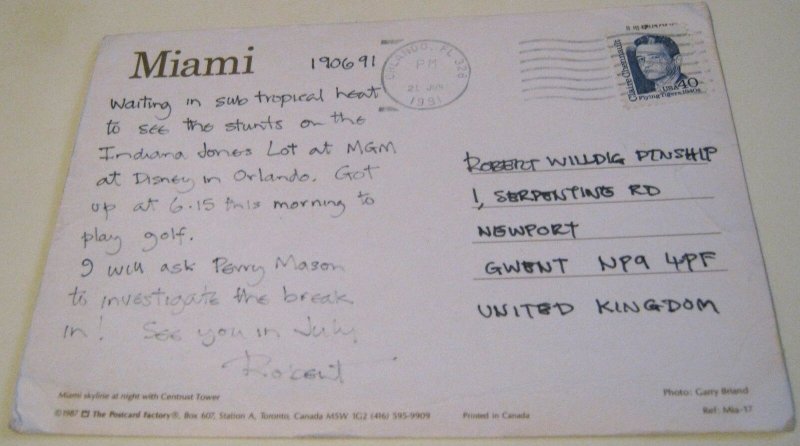 Miami
190691
ORLANDO, FL 328
PM
21 JUN
1991
Claire Chennault
USA 40
Flying Tigers, 1940s
Waiting in sub tropical heat
to see the stunts on the
Indiana Jones Lot at MGM
at Disney in Orlando. Got
up at 6.15 this morning to
play golf.
I will ask Perry Mason
to investigate the break
in! See you in July
Robert
ROBERT WILLDIG PTNSHIP
1, SERPENTINE RD
NEWPORT
GWENT NP9 4PF
UNITED KINGDOM
Miami skyline at night with Centrust Tower
Photo: Garry Briand
©1987 The Postcard Factory®, Box 607, Station A, Toronto, Canada M5W 1G2 (416) 595-9909
Printed in Canada
Ref: Mia-17